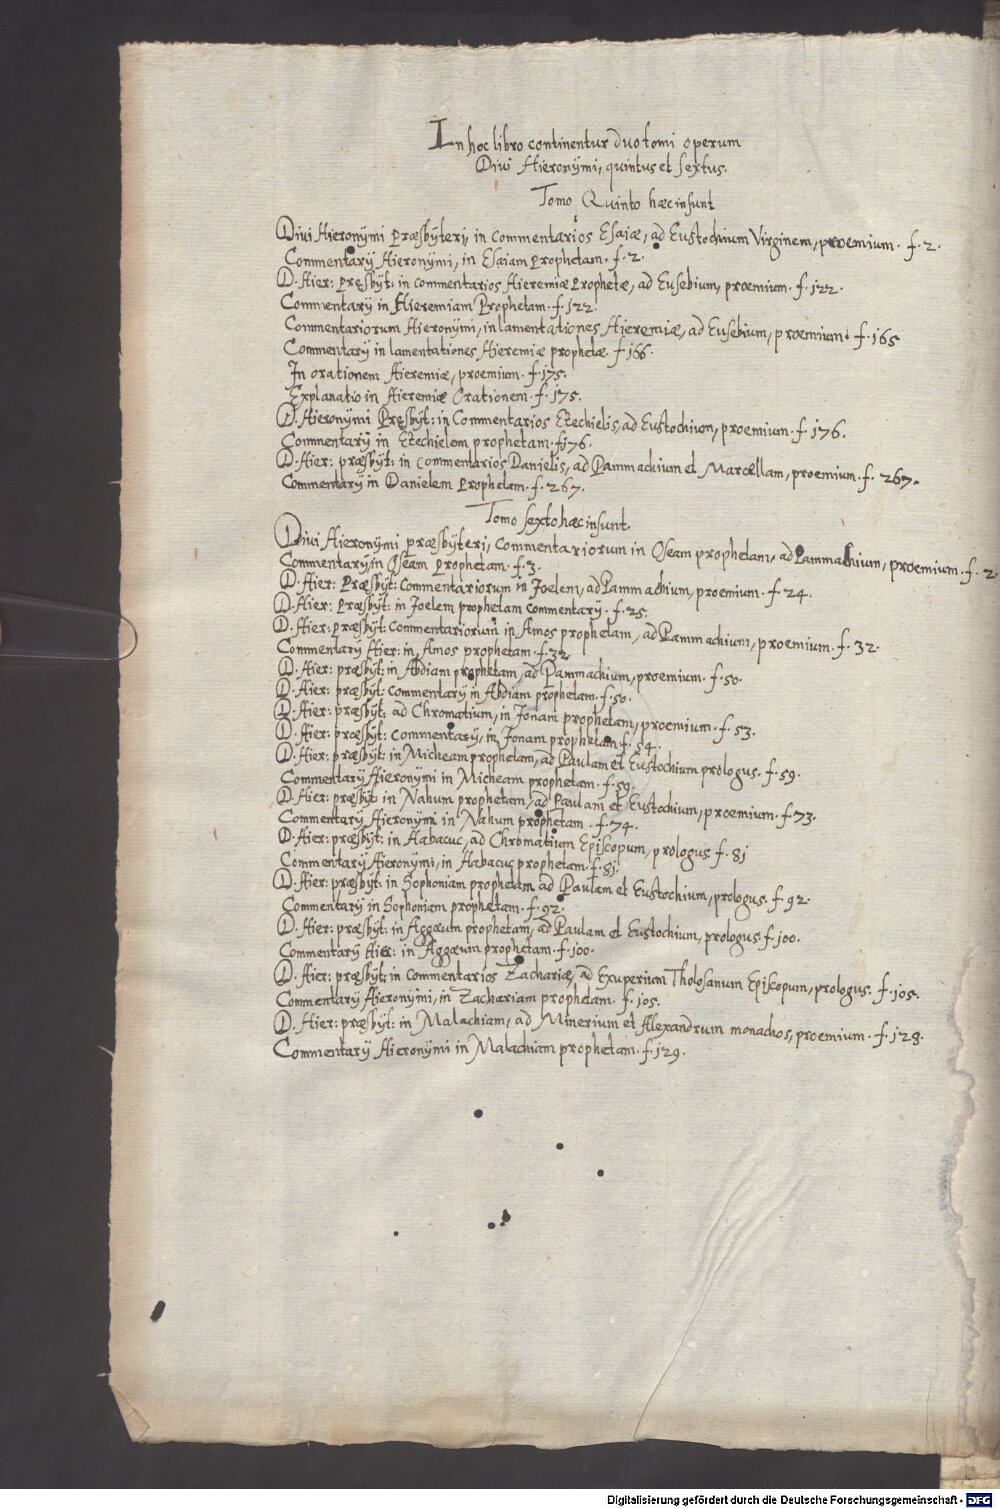 In hoc libro continentur duo tomi operum
Divi Hieronÿmi, quintus et sextus.
Tomo Quinto hæc insunt
Divi Hieronÿmi Præsbÿteri, in Commentarios Esaiæ, ad Eustochium Virginem, proemium. f. 2.
Commentarÿ Hieronÿmi, in Esaiam Prophetam. f. 2.
D. Hier: Pręsbÿt: in commentarios Hieremiæ Prophetæ, ad Eusebium, proemium. f. 122.
Commentarÿ in Hieremiam Prophetam. f. 122.
Commentariorum Hieronÿmi, in lamentationes Hieremiæ, ad Eusebium, proemium. f. 165
Commentarÿ in lamentationes Hieremiæ prophetæ. f 166.
In orationem Hieremiæ, proemium. f. 175.
Explanatio in Hieremiæ Orationem. f. 175.
D. Hieronÿmi Pręsbÿt: in Commentarios Ezechielis, ad Eustochium, proemium. f. 176.
Commentarÿ in Ezechielem prophetam. f. 176.
D. Hier: præsbÿt: in commentarios Danielis, ad Pammachium et Marcellam, proemium. f. 267.
Commentarÿ in Danielem Prophetam. f. 267.
Tomo sexto hæc insunt.
Divi Hieronÿmi præsbÿteri, Commentariorum in Oseam prophetam, ad Pammachium, proemium. f. 2.
Commentarÿ in Oseam Prophetam. f. 3.
D. Hier: Præsbÿt: Commentariorum in Joelem, ad Pammachium, proemium. f. 24.
D. Hier: Præsbÿt: in Joelem prophetam commentarÿ. f. 25.
D. Hier: præsbÿt: Commentariorum in Amos prophetam, ad Pammachium, proemium. f. 32.
Commentarÿ Hier: in Amos prophetam. f. 32
D. Hier: præsbÿt: in Abdiam prophetam, ad Pammachium, proemium. f. 50.
D. Hier: præsbÿt: Commentarÿ in Abdiam prophetam. f. 50.
D. Hier: præsbÿt: ad Chromatium, in Jonam prophetam, proemium. f. 53.
D. Hier: præsbÿt: Commentarÿ, in Jonam prophetam. f. 54.
D. Hier: præsbÿt: in Micheam prophetam, ad Paulam et Eustochium prologus. f. 59.
Commentarÿ Hieronÿmi in Micheam prophetam. f. 59.
D. Hier: præsbÿt: in Nahum prophetam, ad Paulam et Eustochium, proemium. f. 73.
Commentarÿ Hieronÿmi in Nahum prophetam. f. 74.
D. Hier: præsbÿt: in Habacuc, ad Chromatium Episcopum, prologus. f. 81
Commentarÿ Hieronÿmi, in Habacuc prophetam. f. 81.
D. Hier: præsbÿt: in Sophoniam prophetam ad Paulam et Eustochium, prologus. f. 92.
Commentarÿ in Sophoniam prophetam. f. 92.
D. Hier: præsbÿt: in Aggæum prophetam, ad Paulam et Eustochium, prologus. f. 100.
Commentarÿ Hier: in Aggæum prophetam. f. 100.
D. Hier: præsbÿt: in Commentarios Zachariæ, ad Exuperium Tholosanum Episcopum, prologus. f. 105.
Commentarÿ Hieronÿmi, in Zachariam prophetam. f. 105.
D. Hier: præsbÿt: in Malachiam, ad Minerium et Alexandrum monachos, proemium. f. 128.
Commentarÿ Hieronÿmi in Malachiam prophetam. f. 129.
Digitalisierung gefördert durch die Deutsche Forschungsgemeinschaft - DFG